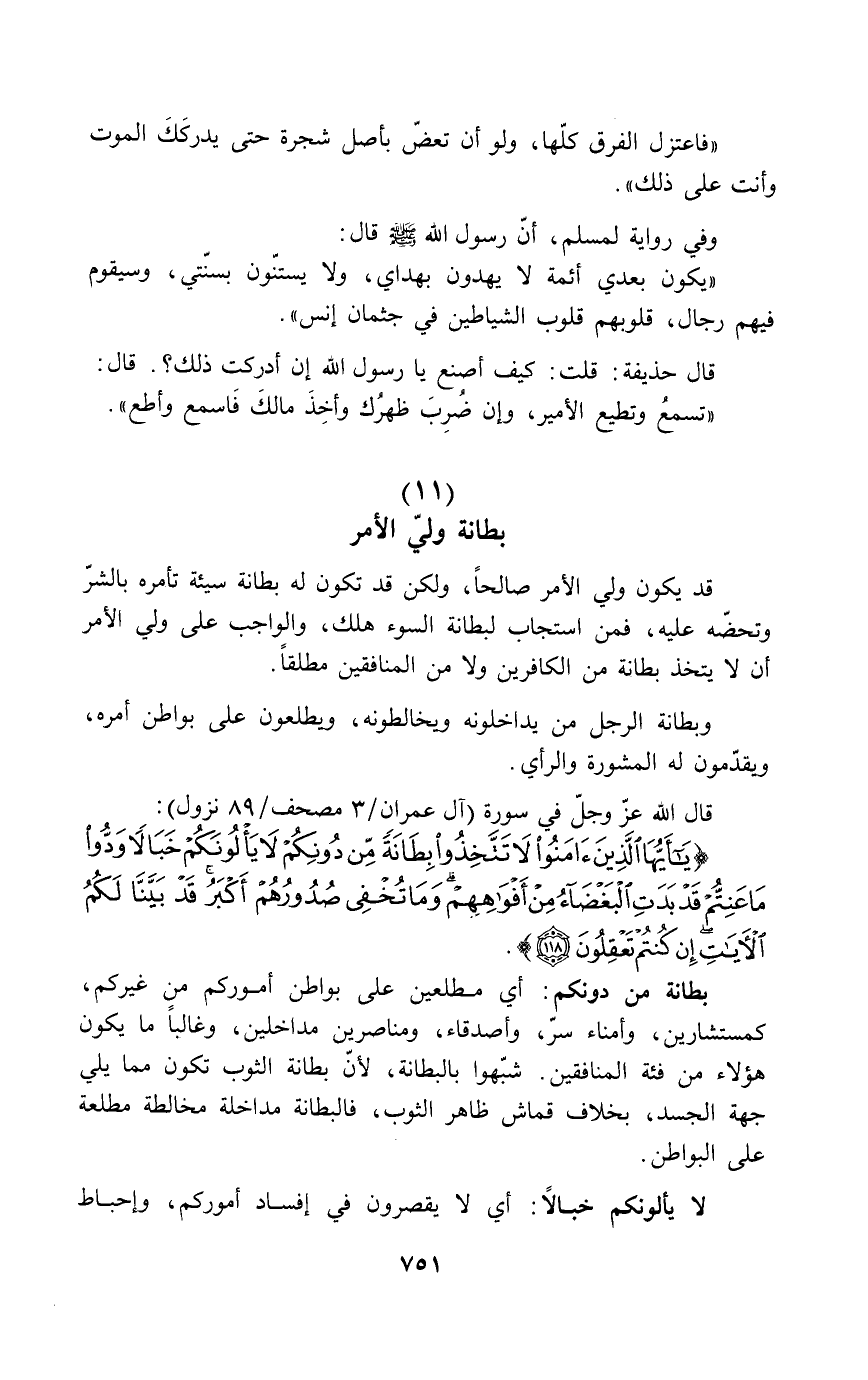 «فاعتزل الفرق كلّها، ولو أن تعضّ بأصل شجرة حتى يدركَكَ الموت
وأنت على ذلك».
وفي رواية لمسلم، أنّ رسول الله ﷺ قال:
«يكون بعدي أئمة لا يهدون بهداي، ولا يستنّون بسنّتي، وسيقوم
فيهم رجال، قلوبهم قلوب الشياطين في جثمان إنس».
قال حذيفة: قلت: كيف أصنع يا رسول الله إن أدركت ذلك؟. قال:
«تسمعُ وتطيع الأمير، وإن ضُرِبَ ظهرُك وأخِذَ مالكَ فَاسمع وأطع».
(١١)
بطانة وليّ الأمر
قد يكون ولي الأمر صالحاً، ولكن قد تكون له بطانة سيئة تأمره بالشرّ
وتحضّه عليه، فمن استجاب لبطانة السوء هلك، والواجب على ولي الأمر
أن لا يتخذ بطانة من الكافرين ولا من المنافقين مطلقاً.
وبطانة الرجل من يداخلونه ويخالطونه، ويطلعون على بواطن أمره،
ويقدّمون له المشورة والرأي.
قال الله عزّ وجلّ في سورة (آل عمران/٣ مصحف/٨٩ نزول):
﴿يَٰٓأَيُّهَا ٱلَّذِينَ ءَامَنُوا۟ لَا تَتَّخِذُوا۟ بِطَانَةً مِّن دُونِكُمْ لَا يَأْلُونَكُمْ خَبَالًا وَدُّوا۟
مَا عَنِتُّمْ قَدْ بَدَتِ ٱلْبَغْضَآءُ مِنْ أَفْوَٰهِهِمْ وَمَا تُخْفِى صُدُورُهُمْ أَكْبَرُ ۚ قَدْ بَيَّنَّا لَكُمُ
ٱلْءَايَٰتِ ۖ إِن كُنتُمْ تَعْقِلُونَ ١١٨﴾.
بطانة من دونكم: أي مـطلعين على بواطن أمـوركم من غيركم،
كمستشارين، وأمناء سرّ، وأصدقاء، ومناصرين مداخلين، وغالباً ما يكون
هؤلاء من فئة المنافقين. شبّهوا بالبطانة، لأنّ بطانة الثوب تكون مما يلي
جهة الجسد، بخلاف قماش ظاهر الثوب، فالبطانة مداخلة مخالطة مطلعة
على البواطن.
لا يألونكم خبـالاً: أي لا يقصرون في إفسـاد أموركم، وإحبـاط
٧٥١